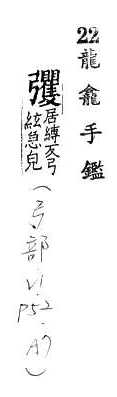 22龍龕手鑑
彏居縛反弓
絃急皃
(弓部.VI.P52.A9)